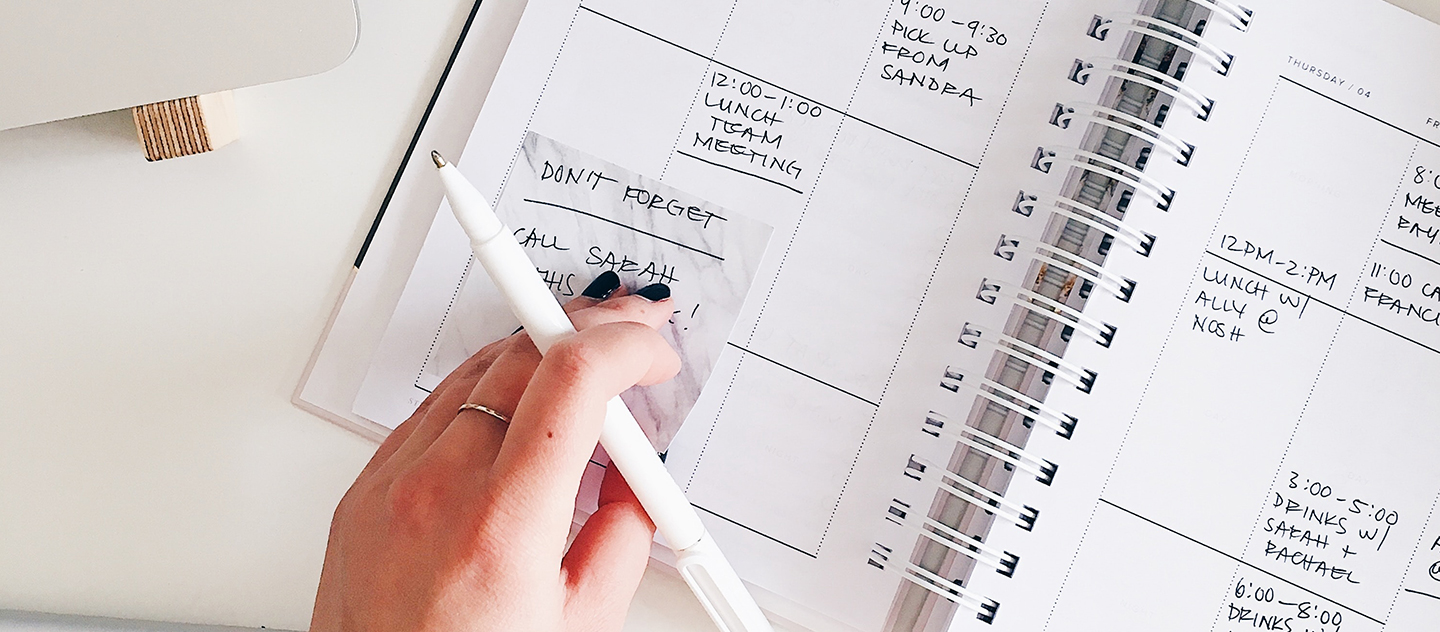 9:00-9:30
PICK UP
FROM
SANDRA
12:00-1:00
LUNCH
TEAM
MEETING
DON'T FORGET
CALL SARAH
THIS
!
THURSDAY / 04
12PM-2:PM
LUNCH W/
ALLY @
NOSH
11:00
3:00-5:00
DRINKS W/
SARAH +
RACHAEL
6:00-8:00
DRINKS